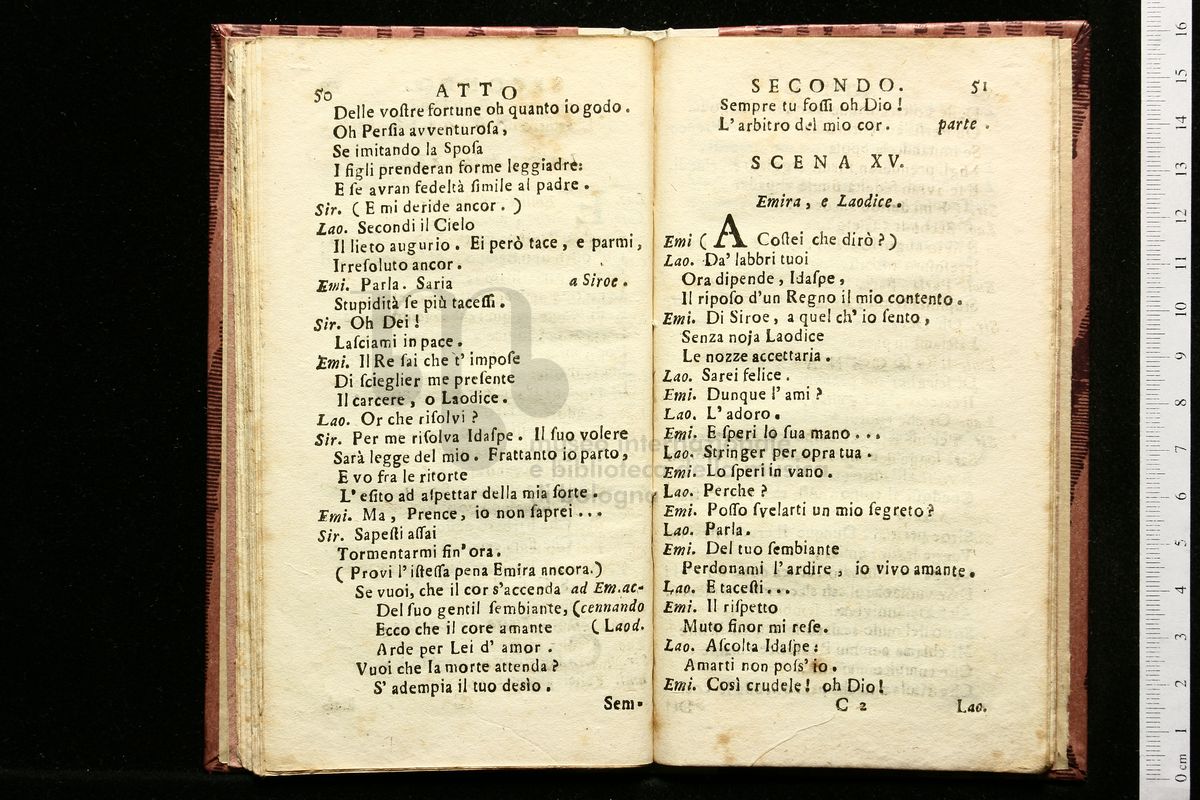 50 ATTO
Delle voſtre fortune oh quanto io godo.
Oh Perſia avventuroſa,
Se imitando la Spoſa
I figli prenderan forme leggiadre:
E ſe avran fedeltà ſimile al padre.
Sir. (E mi deride ancor.)
Lao. Secondi il Cielo
Il lieto augurio. Ei però tace, e parmi,
Irreſoluto ancor.
Emi. Parla. Saria a Siroe.
Stupidità ſe più taceſſi.
Sir. Oh Dei!
Laſciami in pace.
Emi. Il Re ſai che t' impoſe
Di ſcieglier me preſente
Il carcere, o Laodice.
Lao. Or che riſolvi?
Sir. Per me riſolva Idaſpe. Il ſuo volere
Sarà legge del mio. Frattanto io parto,
E vo fra le ritorte
L' eſito ad aſpettar della mia ſorte.
Emi. Ma, Prence, io non ſaprei...
Sir. Sapeſti aſſai
Tormentarmi fin' ora.
(Provi l' iſteſſa pena Emira ancora.)
Se vuoi, che il cor s'accenda ad Em.ac-
Del ſuo gentil ſembiante, (cennando
Ecco che il core amante (Laod.
Arde per Lei d' amor.
Vuoi che la morte attenda?
S' adempia il tuo desìo.
Sem-
SECONDO. 51
Sempre tu foſſi oh Dio!
L' arbitro del mio cor. parte.
SCENA XV.
Emira, e Laodice.
Emi (A Coſtei che dirò?)
Lao. Da' labbri tuoi
Ora dipende, Idaſpe,
Il ripoſo d'un Regno il mio contento.
Emi. Di Siroe, a quel ch' io ſento,
Senza noja Laodice
Le nozze accettaria.
Lao. Sarei felice.
Emi. Dunque l' ami?
Lao. L' adoro.
Emi. E ſperi lo ſua mano...
Lao. Stringer per opra tua.
Emi. Lo ſperi in vano.
Lao. Perche?
Emi. Poſſo ſvelarti un mio ſegreto?
Lao. Parla.
Emi. Del tuo ſembiante
Perdonami l' ardire, io vivo amante.
Lao. E taceſti...
Emi. Il riſpetto
Muto finor mi reſe.
Lao. Aſcolta Idaſpe:
Amarti non poſs' io.
Emi. Così crudele! oh Dio!
C 2 Lao.
museo internazionale
e biblioteca della musica
di bologna
0 cm 1 2 3 4 5 6 7 8 9 10 11 12 13 14 15 16